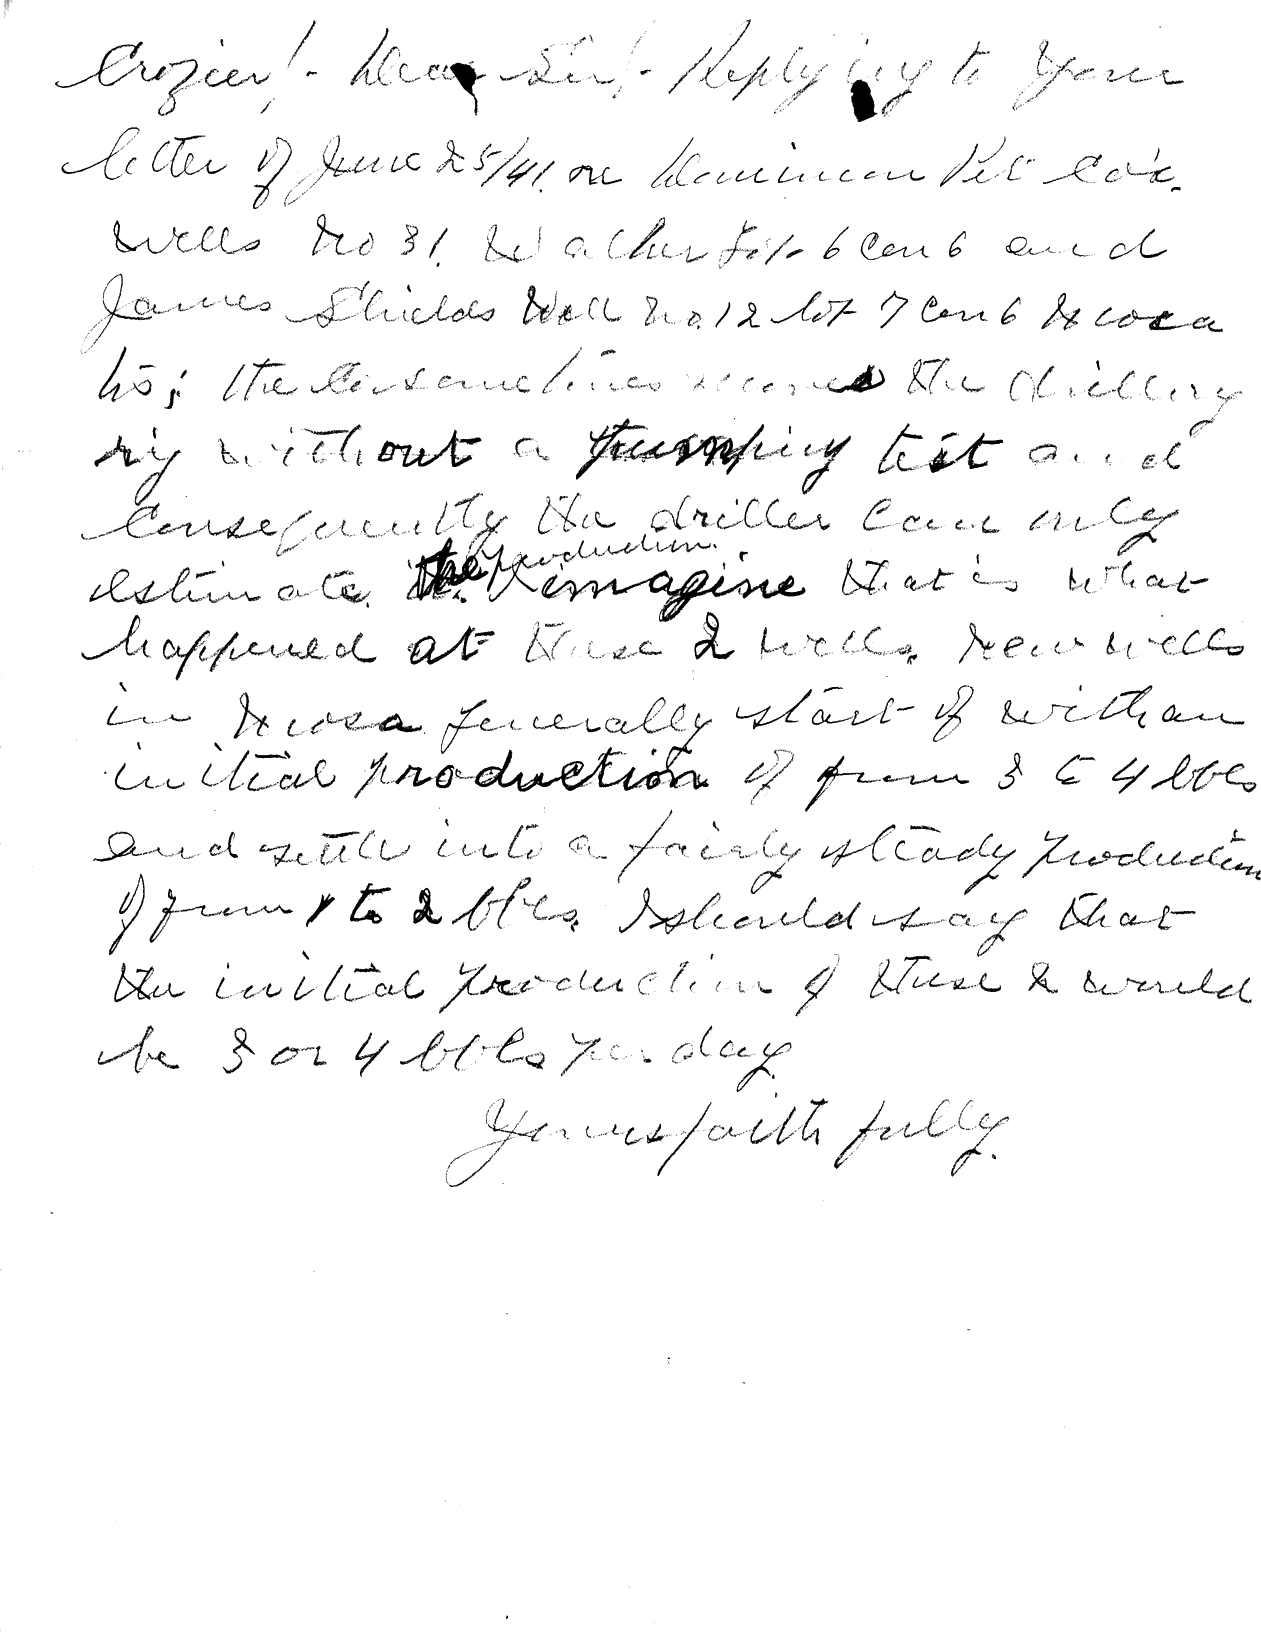 Crozier!- Dear Sir!- Replying to your
letter of June 25/41. re Dominion Pet Co's.
wells No 31. Walker 6 Con 6 and
James Shields Well No. 12 lot 7 Con 6 Mosa
the Co sometimes moves the drilling
rig without a pumping test and
consequently the driller can only
estimate the production. I imagine that is what
happened at these 2 wells. New wells
in Mosa generally start of with an
initial production of from 3 to 4 bbls
and settle into a fairly steady production
of from 1 to 2 bbls. I should say that
the initial production of these 2 would
be 3 or 4 bbls per day.
Yours faithfully.